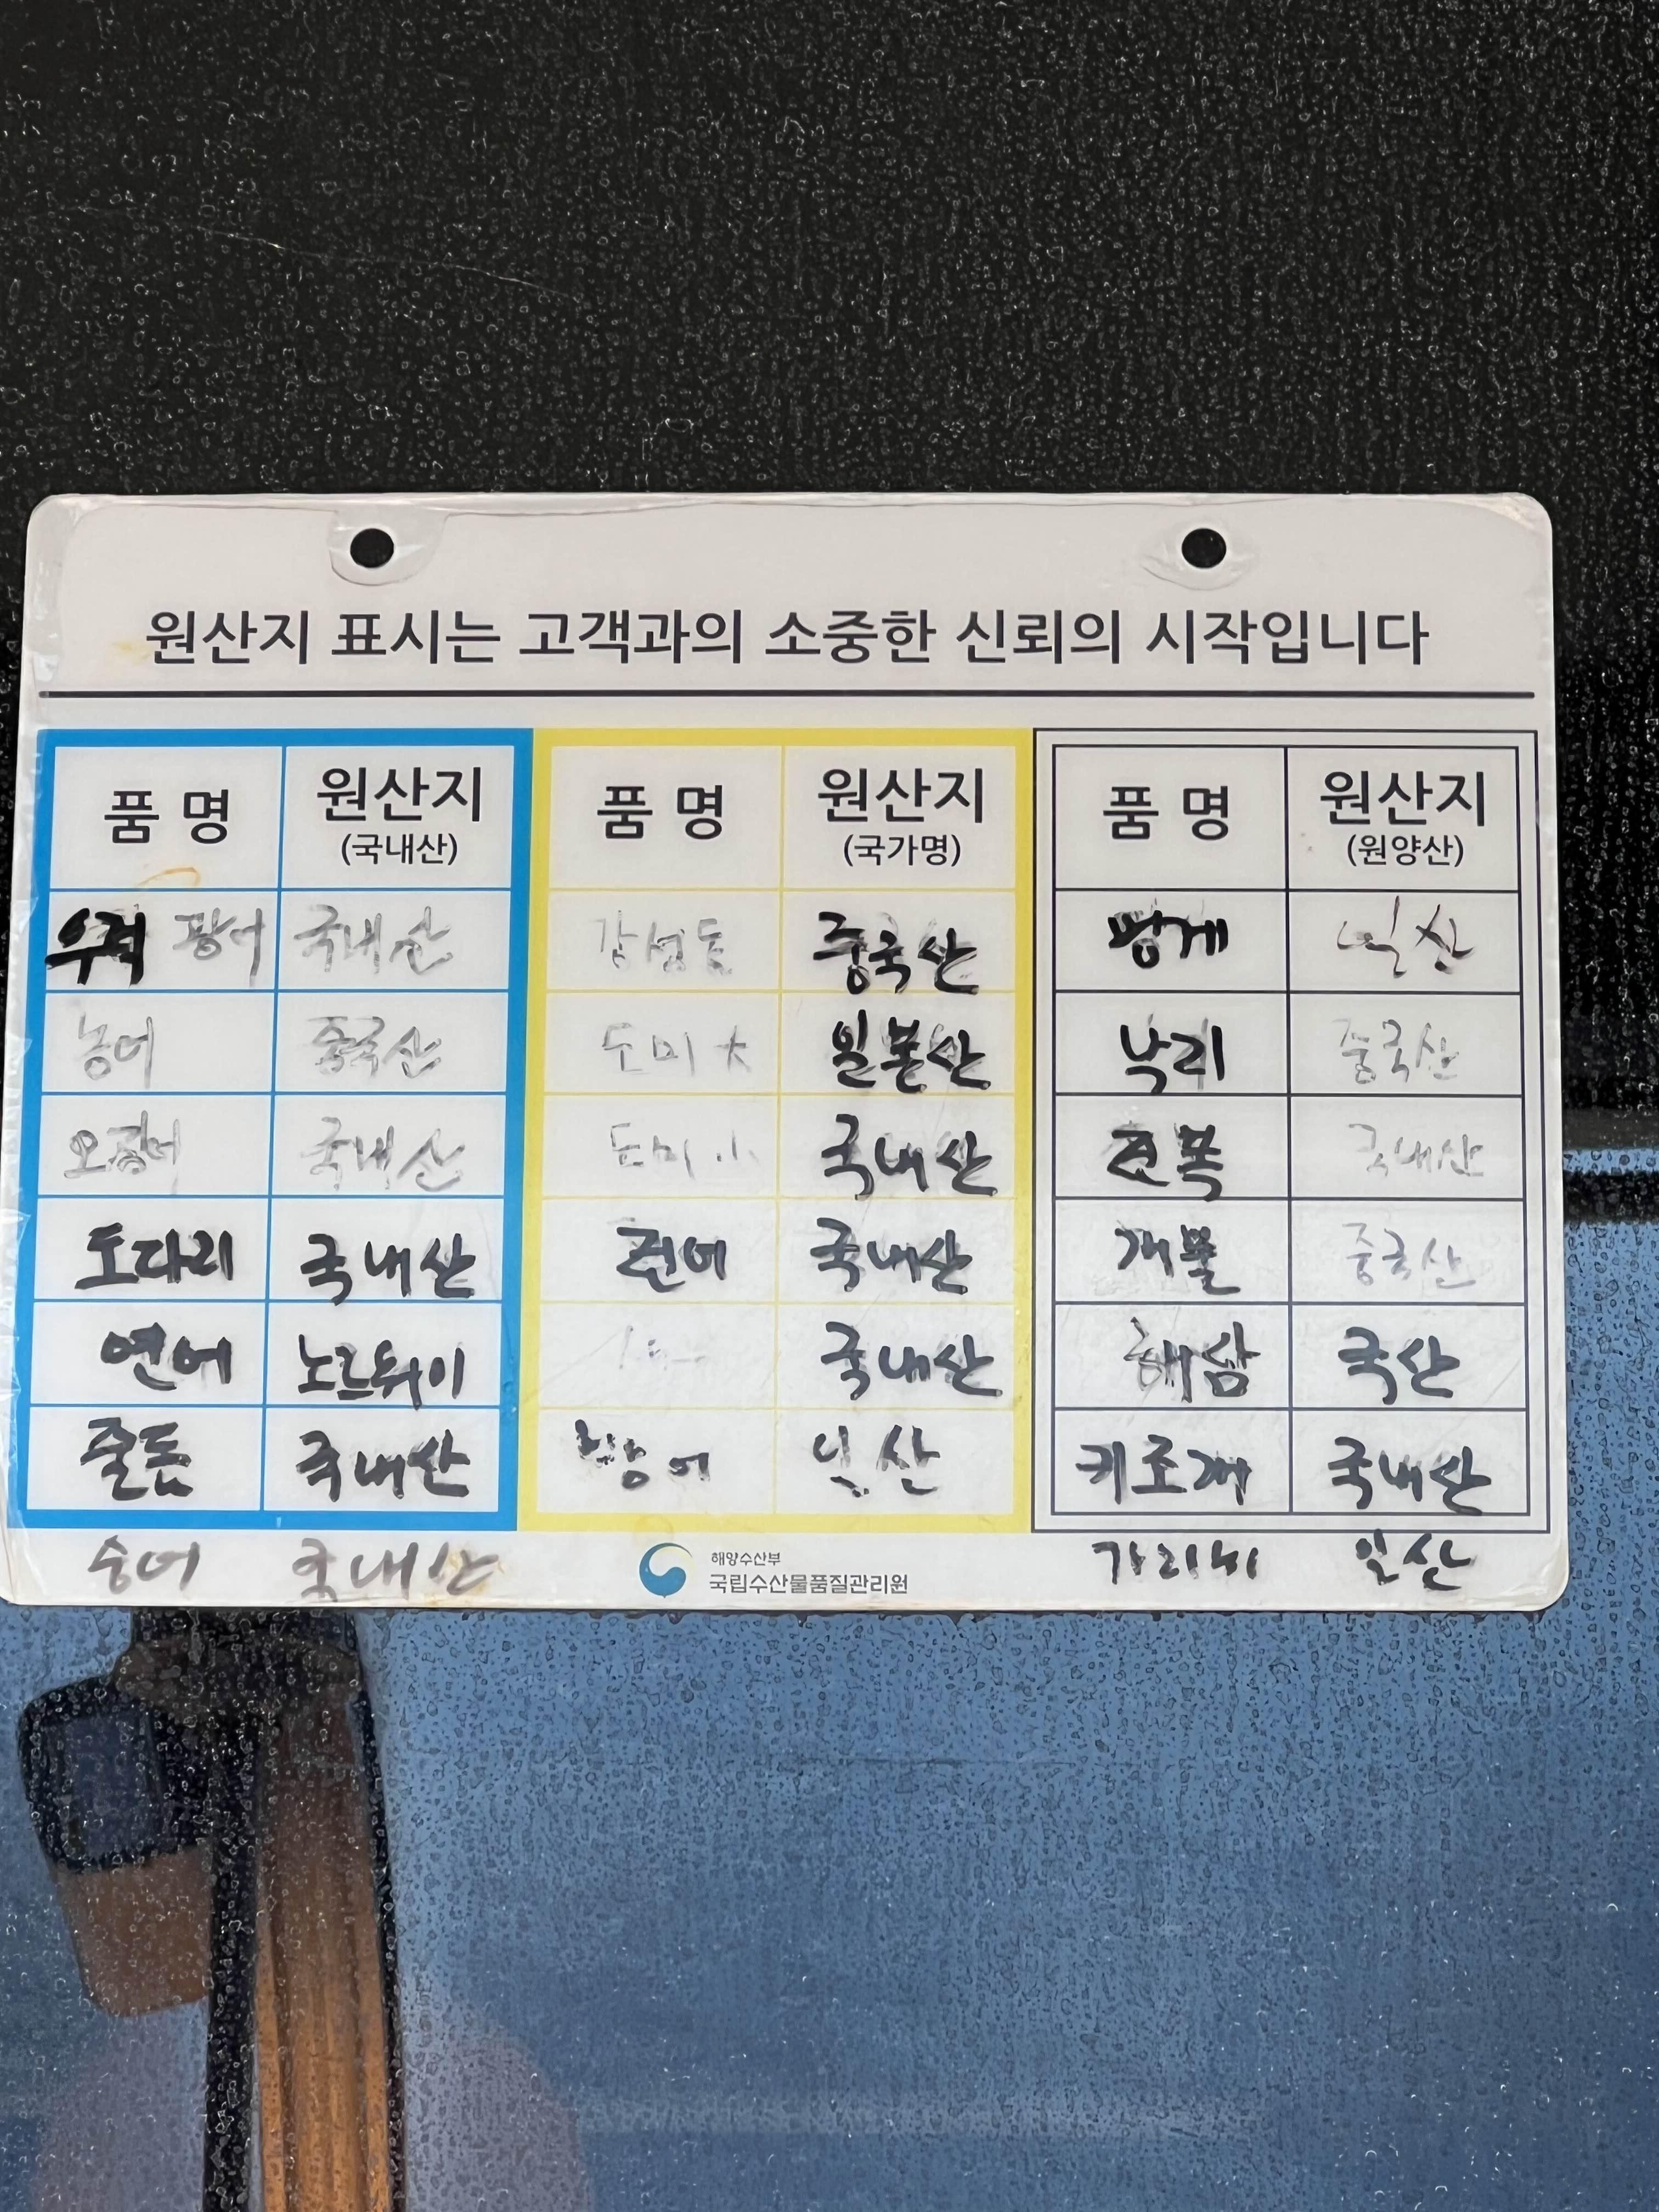 원산지 표시는 고객과의 소중한 신뢰의 시작입니다
품 명 원산지 품 명 원산지 품 명 원산지
(국내산) (국가명) (원양산)
우럭 광어 국내산 감성돔 중국산 멍게 일산
농어 중국산 도미 大 일본산 낙지 중국산
오징어 국내산 도미 小 국내산 전복 국내산
도다리 국내산 전어 국내산 개불 중국산
연어 노르웨이 국내산 해삼 국산
줄돔 국내산 방어 일산 키조개 국내산
숭어 국내산 가리비 일산
해양수산부
국립수산물품질관리원